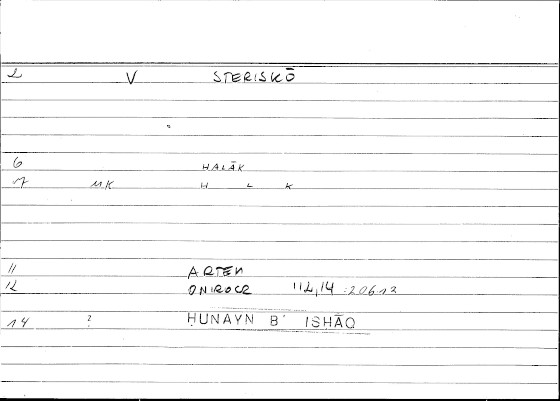 2 V STERISKŌ
6 HALĀK
7 MK H L K
11 ARTEM
12 ONIROCR 112,14 :20612
14 ? ḤUNAYN B' ISḤĀQ